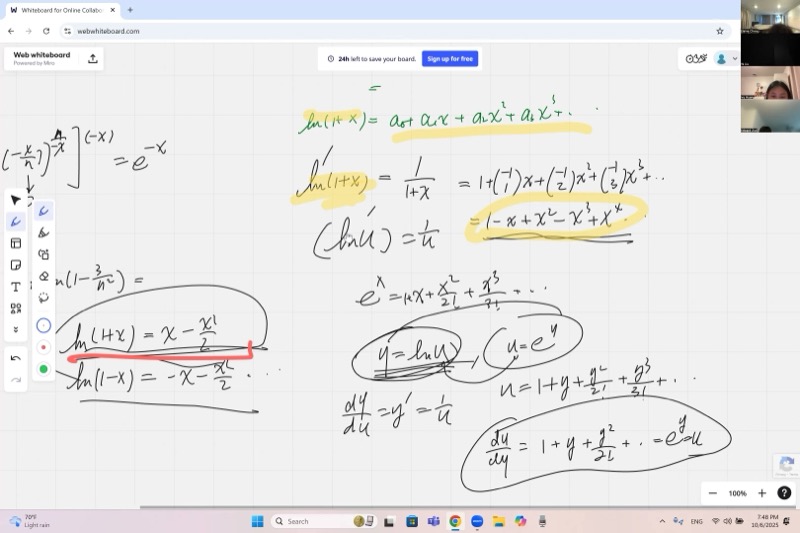 Whiteboard for Online Collabo
webwhiteboard.com
Web whiteboard
Powered by Miro
24h left to save your board.
Sign up for free
=
ln(1+x) = a₀+ a₁x + a₂x² + a₃x³+ ...
(-x/n) ] (-x) = e^-x
ln'(1+x) = 1/(1+x) = 1+(-1 1)x+(-1 2)x²+(-1 3)x³+..
= 1-x+x²-x³+x^x...
(ln u)' = 1/u
n(1-3/n²) =
e^x = 1+x+x²/2!+x³/3!+ ...
ln(1+x) = x - x²/2
y = ln u, u = e^y
ln(1-x) = -x - x²/2 ...
u = 1+y+y²/2!+y³/3!+ ...
dy/du = y' = 1/u
du/dy = 1+y+y²/2!+ .. = e^y = u
100%
70°F
Light rain
Search
ENG
7:48 PM
10/6/2025